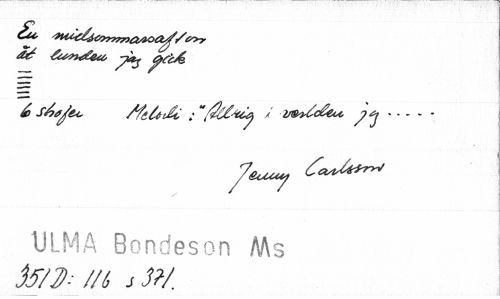 En midsommarsafton
åt lunden jag gick
6 strofer Melodi: "Aldrig i världen jag.....
Jenny Carlsson
ULMA Bondeson Ms
351D: 116 s 371.